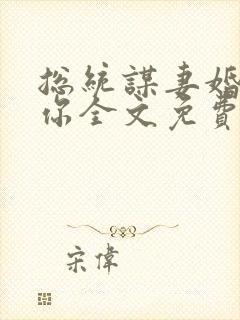 总統謀妻婚
你全文免費
宋偉